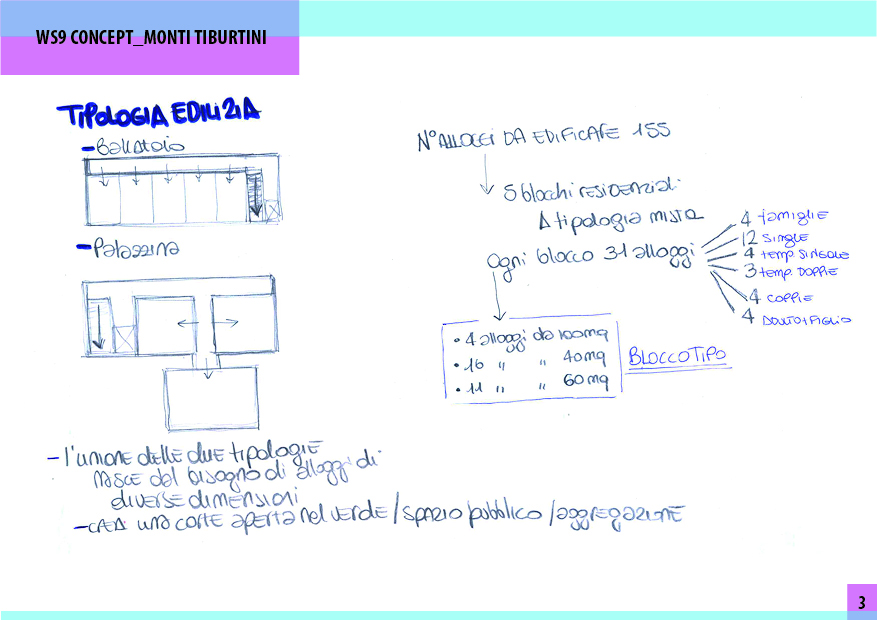 WS9 CONCEPT_MONTI TIBURTINI
TIPOLOGIA EDILIZIA
- Ballatoio
- Palazzina
N° ALLOGGI DA EDIFICARE 155
5 blocchi RESIDENZIALI
A tipologia mista
Ogni blocco 31 alloggi
4 famiglie
12 single
4 temp. SINGOLE
3 temp. DOPPIE
4 COPPIE
4 ADULTO+FIGLIO
• 4 alloggi da 100mq
• 16 " " 40mq
• 11 " " 60mq
BLOCCO TIPO
- l'unione delle due tipologie
nasce dal bisogno di alloggi di
diverse dimensioni
- crea una corte aperta nel verde/spazio pubblico/aggregazione
3